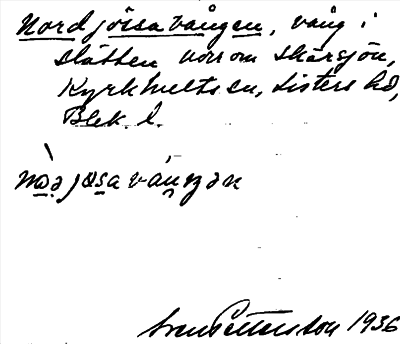 Nordjösavången, vång i
slätten norr om Skärsjön,
Kyrkhults sn, Listers hd,
Blek. l.
Sven Pettersson 1936